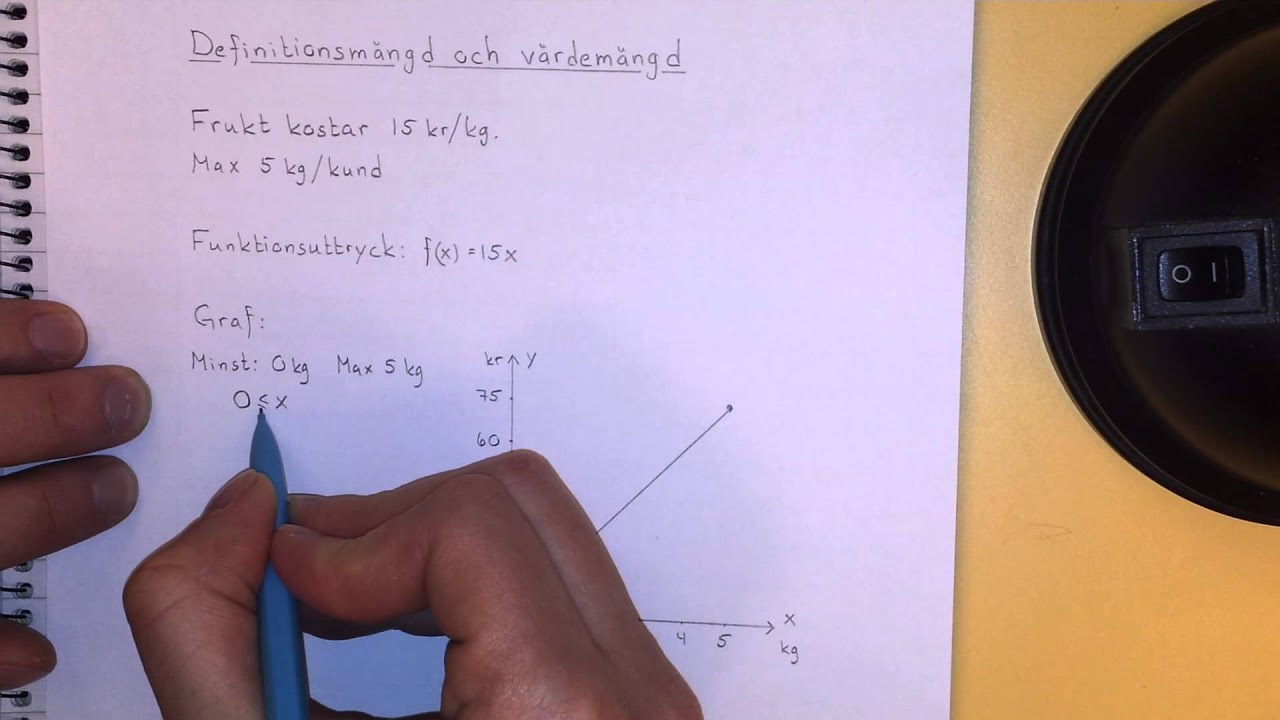 Definitionsmängd och värdemängd
Frukt kostar 15 kr/kg.
Max 5 kg/kund
Funktionsuttryck: f(x) = 15x
Graf:
Minst: 0 kg Max 5 kg
0 ≤ x
kr y
75
60
4 5 x
kg
O I